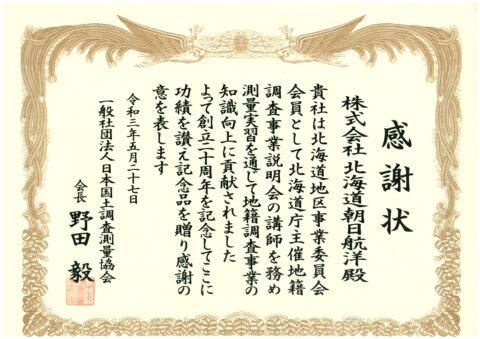 感謝状
株式会社 北海道朝日航洋 殿
貴社は北海道地区事業委員会
会員として北海道庁主催地籍
調査事業説明会の講師を務め
測量実習を通じて地籍調査事業の
知識向上に貢献されました
よって創立二十周年を記念してここに
功績を讃え記念品を贈り感謝の
意を表します
令和三年五月二十七日
一般社団法人日本国土調査測量協会
会長 野田 毅